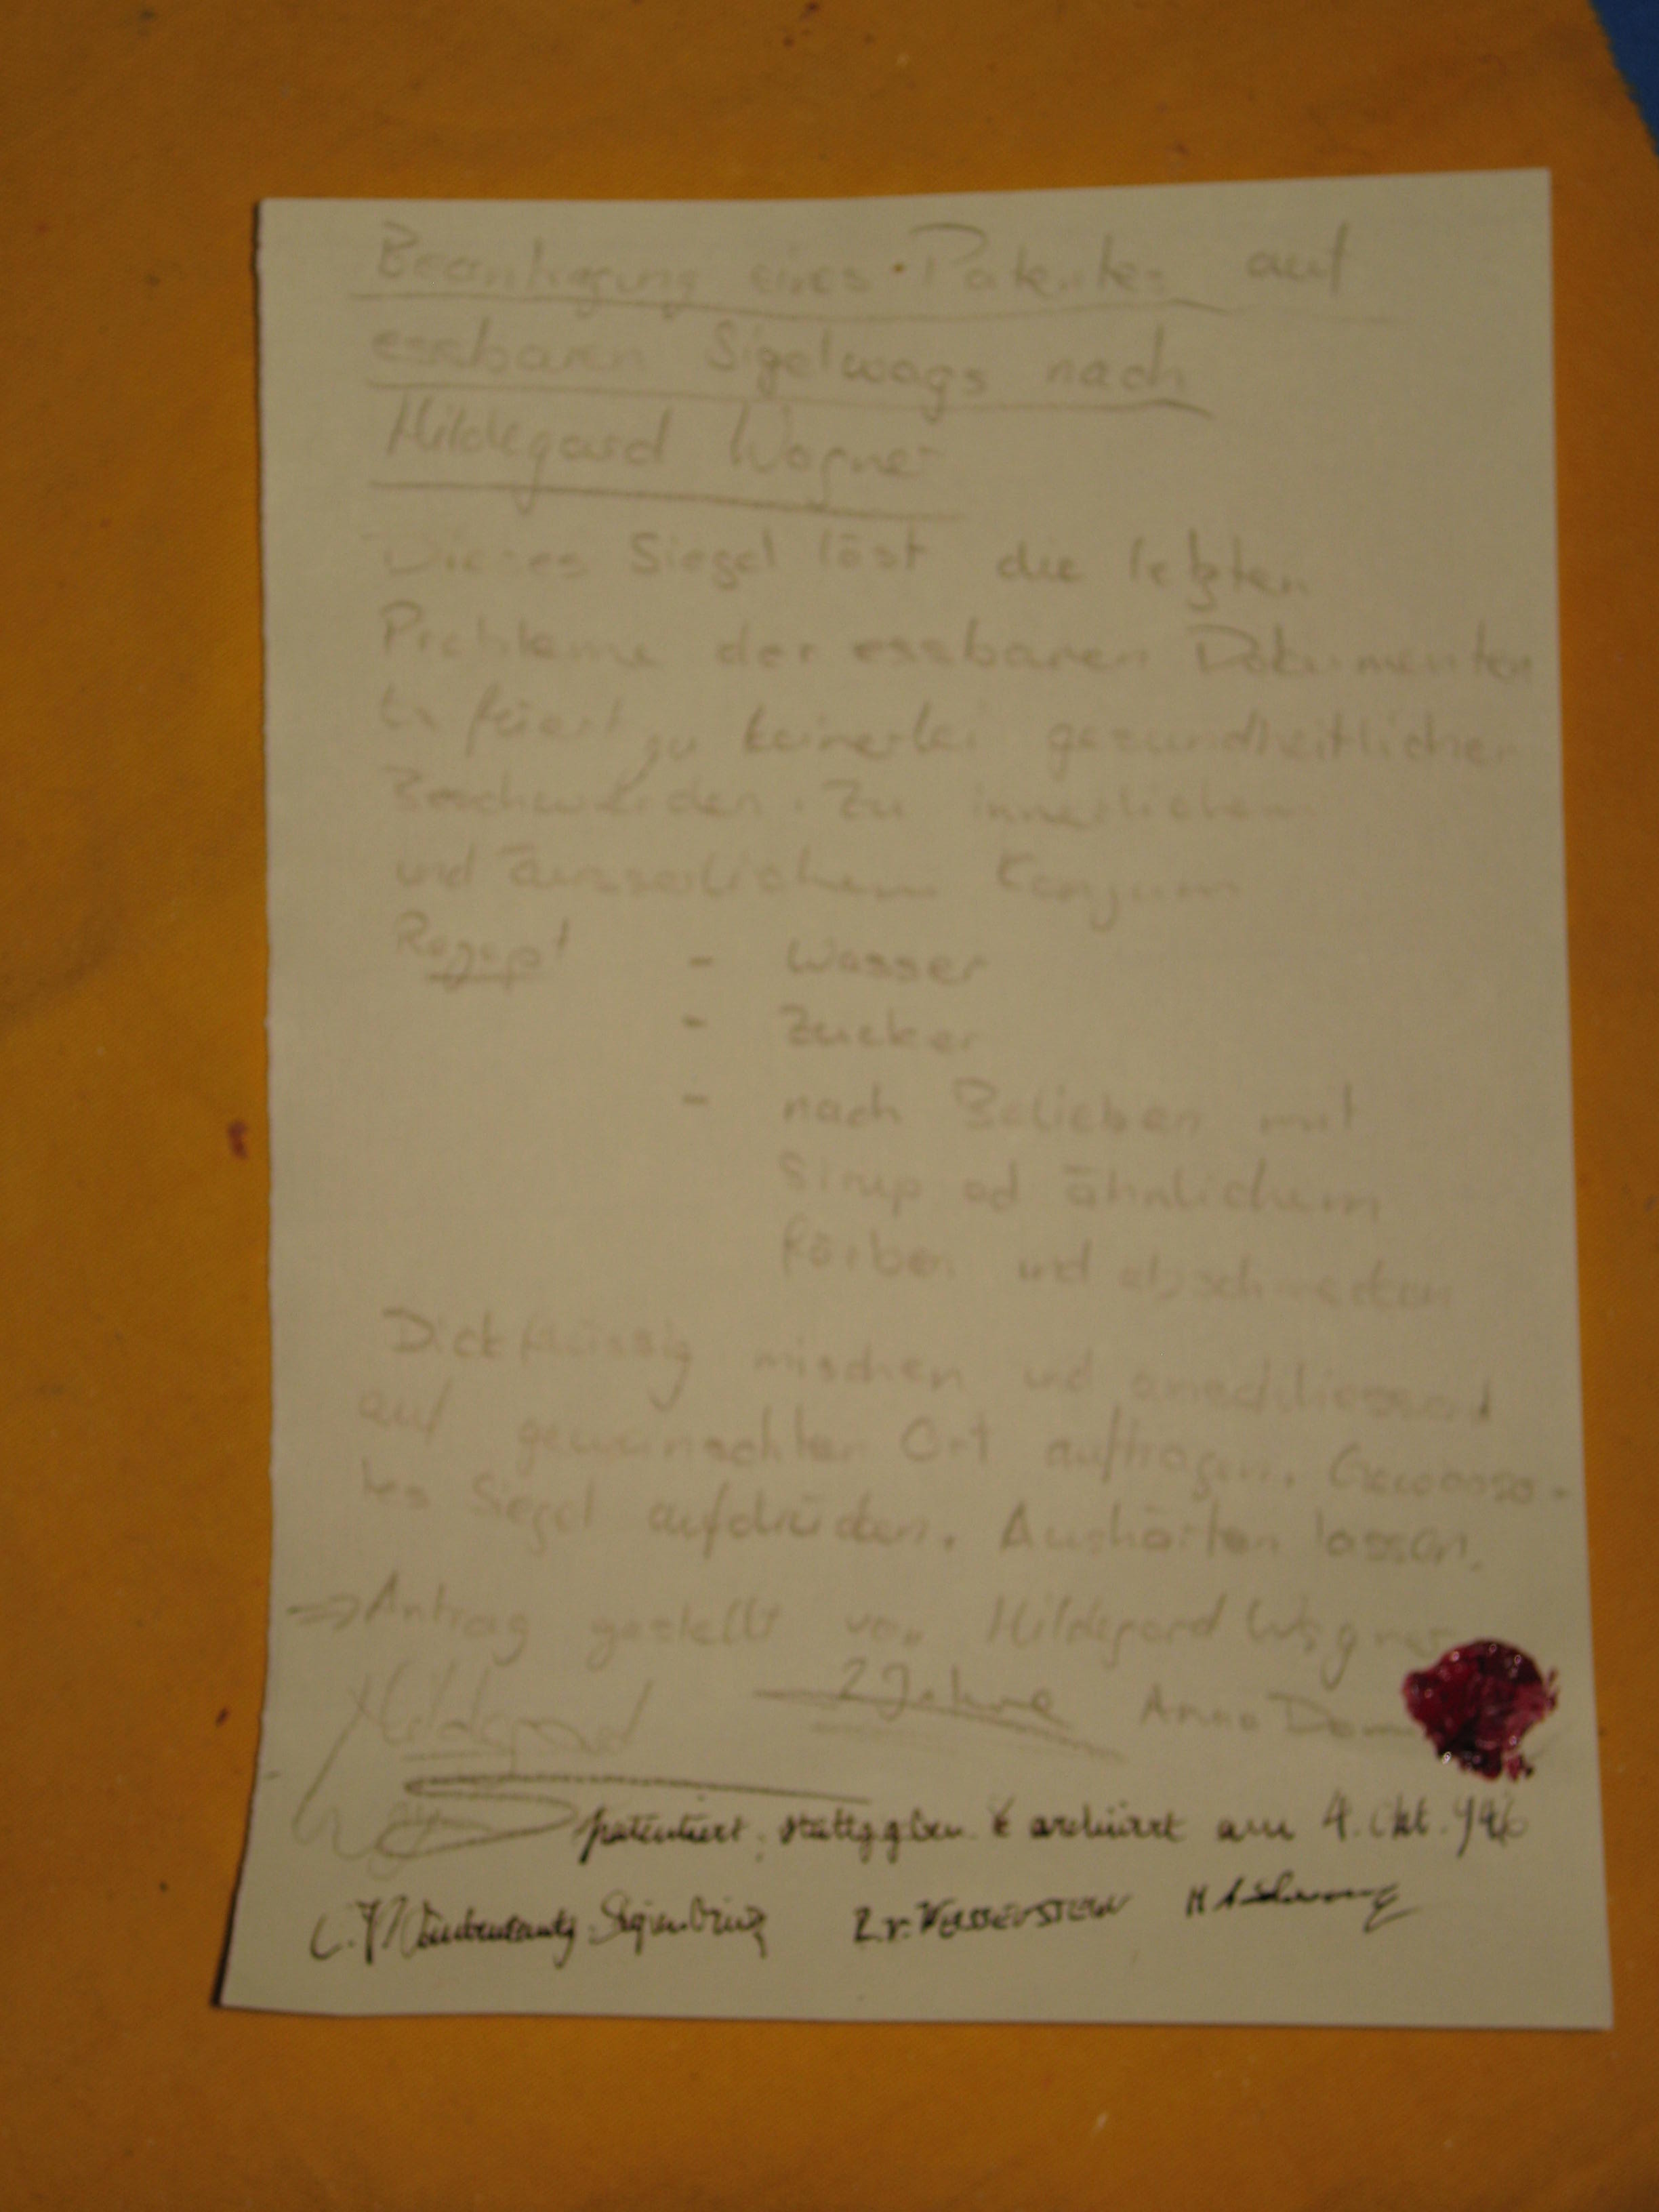 Beantragung eines Patentes auf
essbaren Sigelwags nach
Hildegard Wagner
Dieses Siegel löst die letzten
Probleme der essbaren Dokumenten
Es füert zu keinerlei gesundheitlichen
Beschwerden. Zu innerlichem
und äusserlichem Konzum
Rezept - Wasser
- Zucker
- nach Belieben mit
Sirup od ähnlichem
färben und abschmecken
Dickflüssig mischen und anschliessend
auf gewünschten Ort auftragen.
Siegel aufdrücken. Aushärten lassen.
⇒ Antrag gestellt von Hildegard Wagner
Hildegard 2 Jahre Anno Dom
patentiert, & archiviert am 4. Okt.